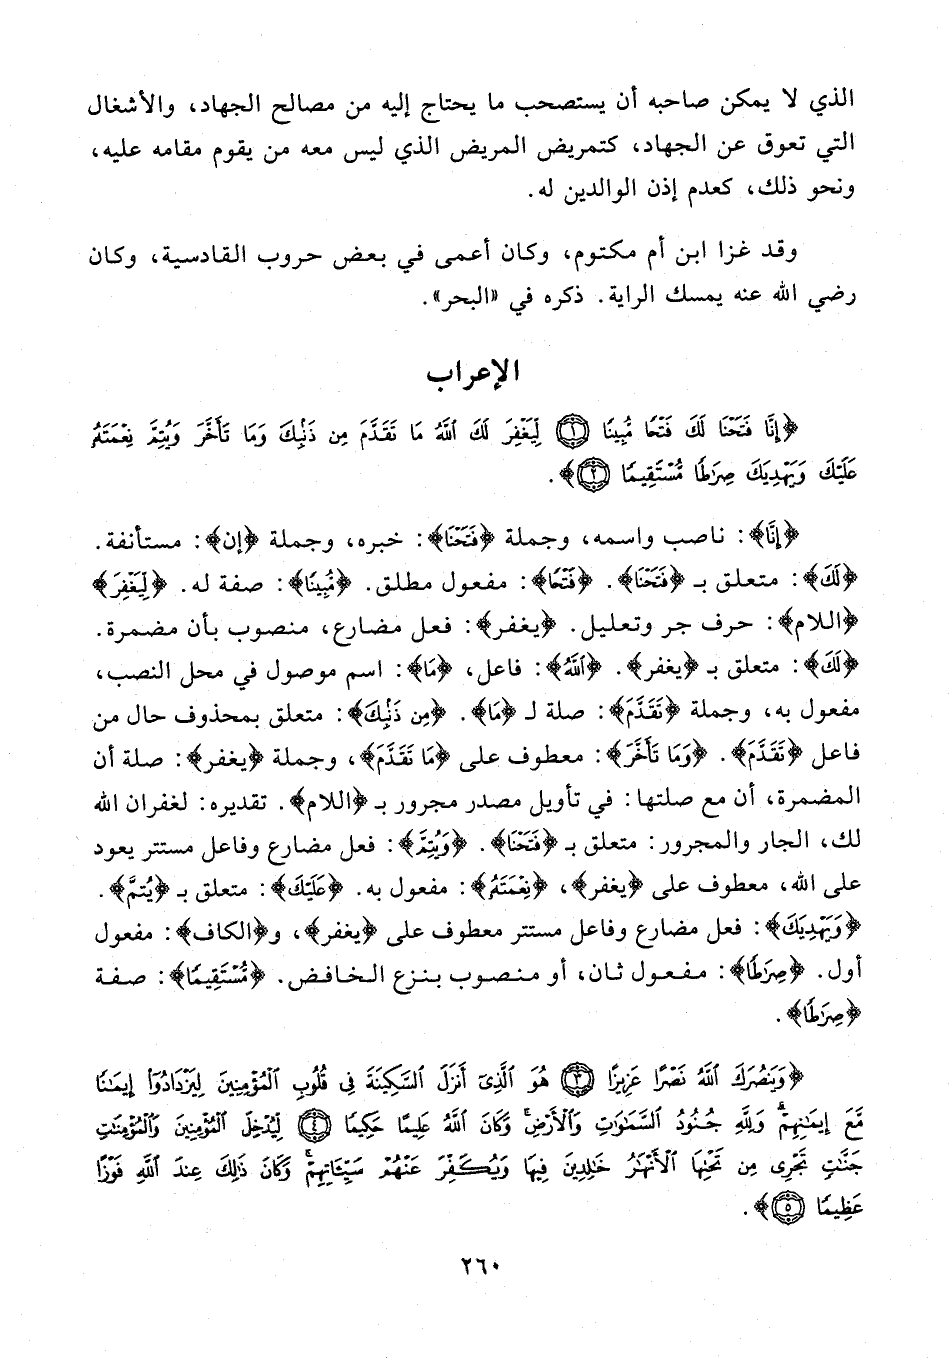 الذي لا يمكن صاحبه أن يستصحب ما يحتاج إليه من مصالح الجهاد، والأشغال
التي تعوق عن الجهاد، كتمريض المريض الذي ليس معه من يقوم مقامه عليه،
ونحو ذلك، كعدم إذن الوالدين له.
وقد غزا ابن أم مكتوم، وكان أعمى في بعض حروب القادسية، وكان
رضي الله عنه يمسك الراية. ذكره في «البحر».
الإعراب
﴿إِنَّا فَتَحْنَا لَكَ فَتْحًا مُّبِينًا ١ لِّيَغْفِرَ لَكَ ٱللَّهُ مَا تَقَدَّمَ مِن ذَنۢبِكَ وَمَا تَأَخَّرَ وَيُتِمَّ نِعْمَتَهُۥ
عَلَيْكَ وَيَهْدِيَكَ صِرَٰطًا مُّسْتَقِيمًا ٢﴾.
﴿إِنَّا﴾: ناصب واسمه، وجملة ﴿فَتَحْنَا﴾: خبره، وجملة ﴿إن﴾: مستأنفة.
﴿لَكَ﴾: متعلق بـ ﴿فَتَحْنَا﴾. ﴿فَتْحًا﴾: مفعول مطلق. ﴿مُّبِينًا﴾: صفة له. ﴿لِّيَغْفِرَ﴾
﴿اللام﴾: حرف جر وتعليل. ﴿يغفر﴾: فعل مضارع، منصوب بأن مضمرة.
﴿لَكَ﴾: متعلق بـ ﴿يغفر﴾. ﴿ٱللَّهُ﴾: فاعل، ﴿مَا﴾: اسم موصول في محل النصب،
مفعول به، وجملة ﴿تَقَدَّمَ﴾: صلة لـ ﴿مَا﴾. ﴿مِن ذَنۢبِكَ﴾: متعلق بمحذوف حال من
فاعل ﴿تَقَدَّمَ﴾. ﴿وَمَا تَأَخَّرَ﴾: معطوف على ﴿مَا تَقَدَّمَ﴾، وجملة ﴿يغفر﴾: صلة أن
المضمرة، أن مع صلتها: في تأويل مصدر مجرور بـ ﴿اللام﴾. تقديره: لغفران الله
لك، الجار والمجرور: متعلق بـ ﴿فَتَحْنَا﴾. ﴿وَيُتِمَّ﴾: فعل مضارع وفاعل مستتر يعود
على الله، معطوف على ﴿يغفر﴾، ﴿نِعْمَتَهُۥ﴾: مفعول به. ﴿عَلَيْكَ﴾: متعلق بـ ﴿يُتِمَّ﴾.
﴿وَيَهْدِيَكَ﴾: فعل مضارع وفاعل مستتر معطوف على ﴿يغفر﴾، و﴿الكاف﴾: مفعول
أول. ﴿صِرَٰطًا﴾: مفعول ثان، أو منصوب بنزع الخافض. ﴿مُّسْتَقِيمًا﴾: صفة
﴿صِرَٰطًا﴾.
﴿وَيَنصُرَكَ ٱللَّهُ نَصْرًا عَزِيزًا ٣ هُوَ ٱلَّذِىٓ أَنزَلَ ٱلسَّكِينَةَ فِى قُلُوبِ ٱلْمُؤْمِنِينَ لِيَزْدَادُوٓا۟ إِيمَٰنًا
مَّعَ إِيمَٰنِهِمْ ۗ وَلِلَّهِ جُنُودُ ٱلسَّمَٰوَٰتِ وَٱلْأَرْضِ ۚ وَكَانَ ٱللَّهُ عَلِيمًا حَكِيمًا ٤ لِّيُدْخِلَ ٱلْمُؤْمِنِينَ وَٱلْمُؤْمِنَٰتِ
جَنَّٰتٍ تَجْرِى مِن تَحْتِهَا ٱلْأَنْهَٰرُ خَٰلِدِينَ فِيهَا وَيُكَفِّرَ عَنْهُمْ سَيِّـَٔاتِهِمْ ۚ وَكَانَ ذَٰلِكَ عِندَ ٱللَّهِ فَوْزًا
عَظِيمًا ٥﴾.
٢٦٠